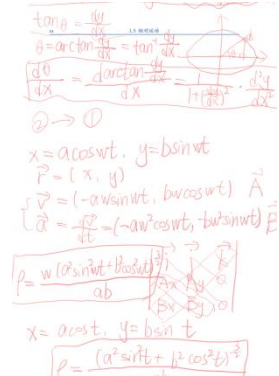 tanθ = dy/dx
1.5 相对运动
θ = arctan dy/dx = tan⁻¹ dy/dx
dθ/dx = d arctan dy/dx / dx = 1/(1+(dy/dx)²) · d²y/dx²
② → ①
x = a cos wt, y = b sin wt
r⃗ = (x, y)
v⃗ = (-aw sin wt, bw cos wt) A⃗
a⃗ = dv⃗/dt = (-aw² cos wt, -bw² sin wt) B⃗
ρ = w(a² sin² wt + b² cos² wt)^(3/2) / ab
Ax Ay 0
Bx By 0
x = a cos t, y = b sin t
ρ = (a² sin² t + b² cos² t)^(3/2)